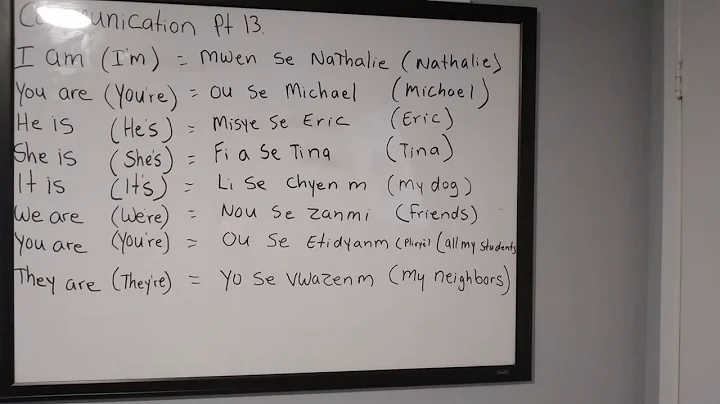 Communication Pt 13.
I am (I'm) = Mwen Se Nathalie (Nathalie)
You are (You're) = OU Se Michael (Michael)
He is (He's) = Misye Se Eric (Eric)
She is (She's) = Fi a Se Tina (Tina)
It is (It's) = Li Se Chyen m (my dog)
We are (We're) = Nou Se Zanmi (Friends)
You are (You're) = OU Se Etidyanm (all my students
They are (They're) = Yo Se Vwazen m (my neighbors)